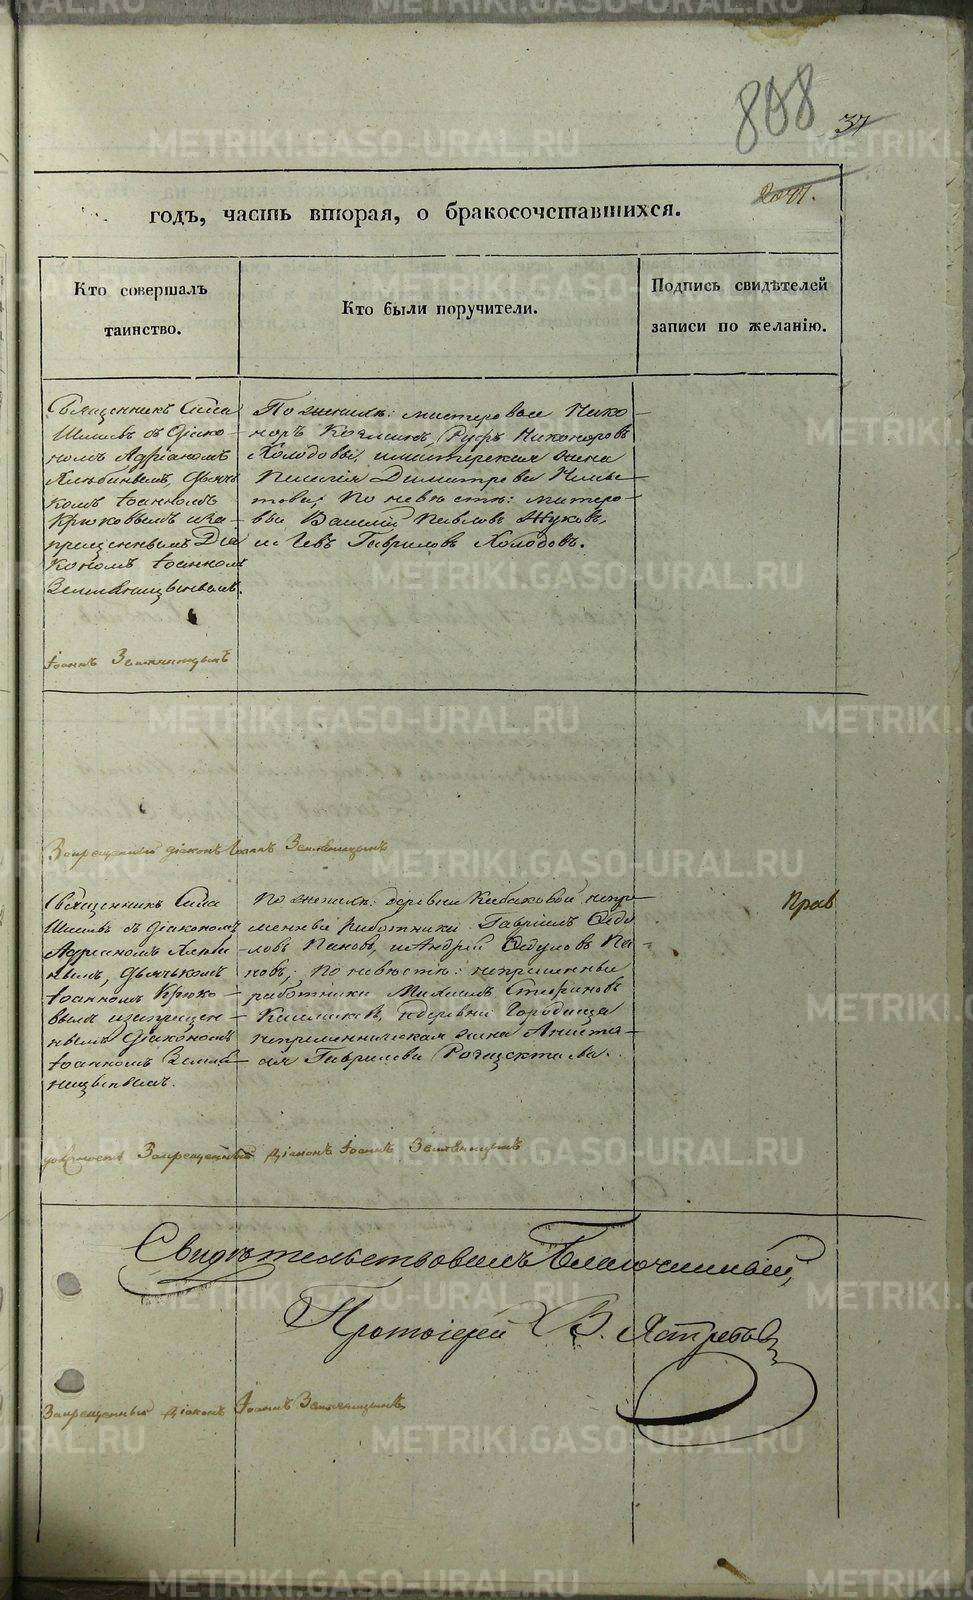 808
37
годъ, часть вторая, о бракосочетавшихся.
Кто совершалъ
таинство.
Кто были поручители.
Подпись свидѣтелей
записи по желанію.
Священникъ Сила
Шишевъ съ діако-
номъ Адріаномъ
дьяч
комъ Іоанномъ
Крюковымъ и за-
прещеннымъ Діа
кономъ Іоанномъ
Земляницынымъ.
Іоаннъ Земляницынъ
По женихѣ: мастеровые Нико-
норъ Руфъ Никоноровъ
Холодовы, и мастерская жена
Пелагія Димитрева
това; По невѣстѣ: мастеро-
вые Василій Павловъ Жуковъ,
и Левъ Гавриловъ Холодовъ.
Запрещенный діаконъ Іоаннъ Земляницынъ
Священникъ Сила
Шишевъ съ діакономъ
Адріаномъ
дьячькомъ
Іоанномъ Крюко-
вымъ и запрещен-
нымъ Діакономъ
Іоанномъ Земля-
ницынымъ.
По женихѣ: деревни Кибаковой непре-
менные работники Гавріилъ Ѳедо
ловъ Пановъ, и Андрей Ѳедуловъ Па-
новъ; По невѣстѣ: непременные
работники Михаилъ Стефановъ
и деревни Городища
непременническая жена Анаста-
сія Гаврилова
Прав
Запрещенный Діаконъ Іоаннъ Земляницынъ
Свидѣтельствовалъ Благочинный,
Протоіерей В. Ястребовъ
Запрещенный Діаконъ Іоаннъ Земляницынъ
METRIKI.GASO-URAL.RU